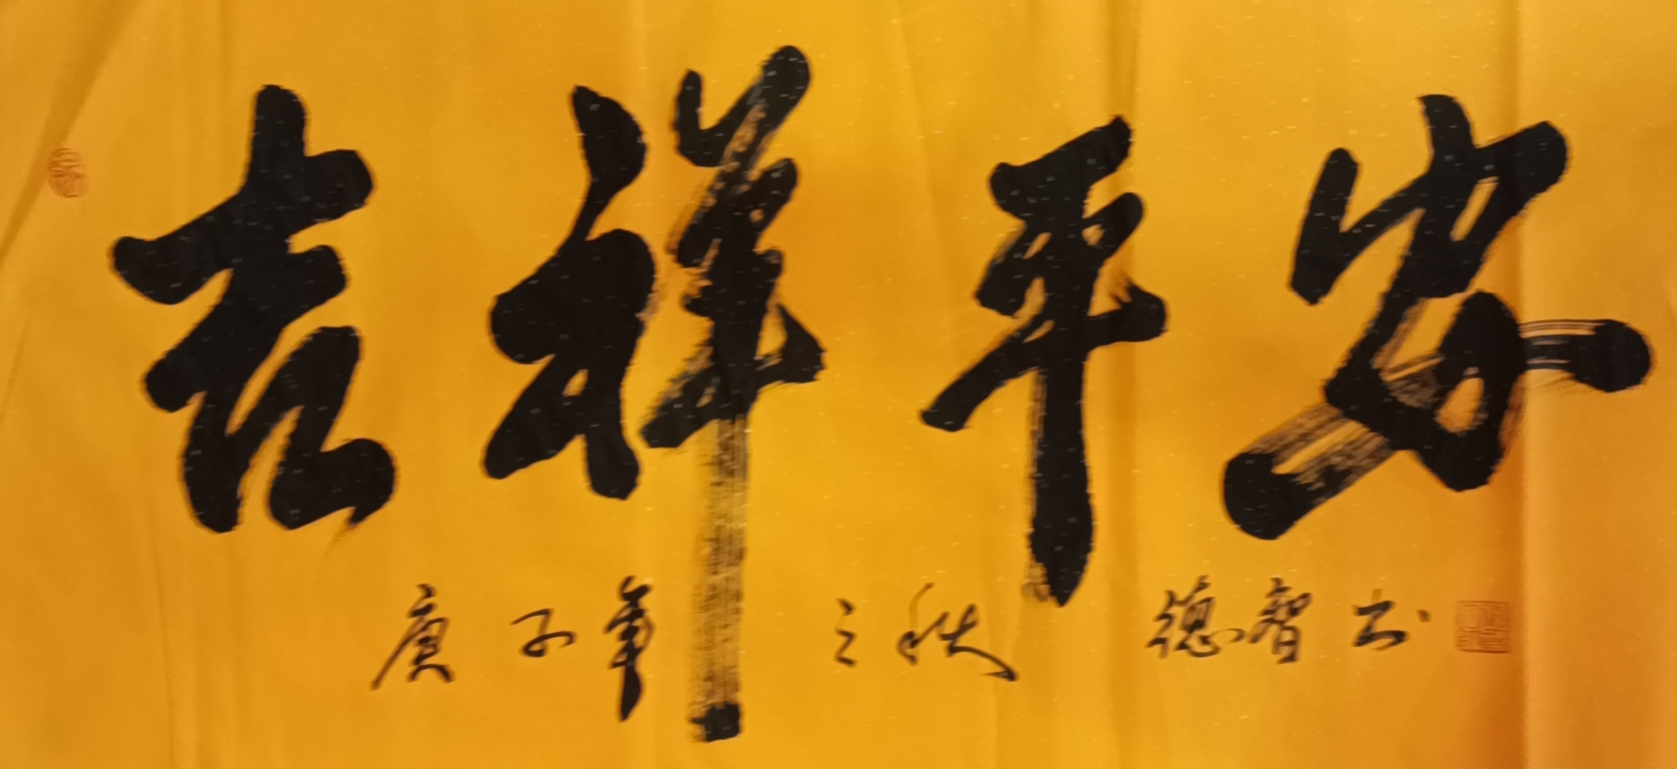 吉祥平安
庚子年之秋 德智书